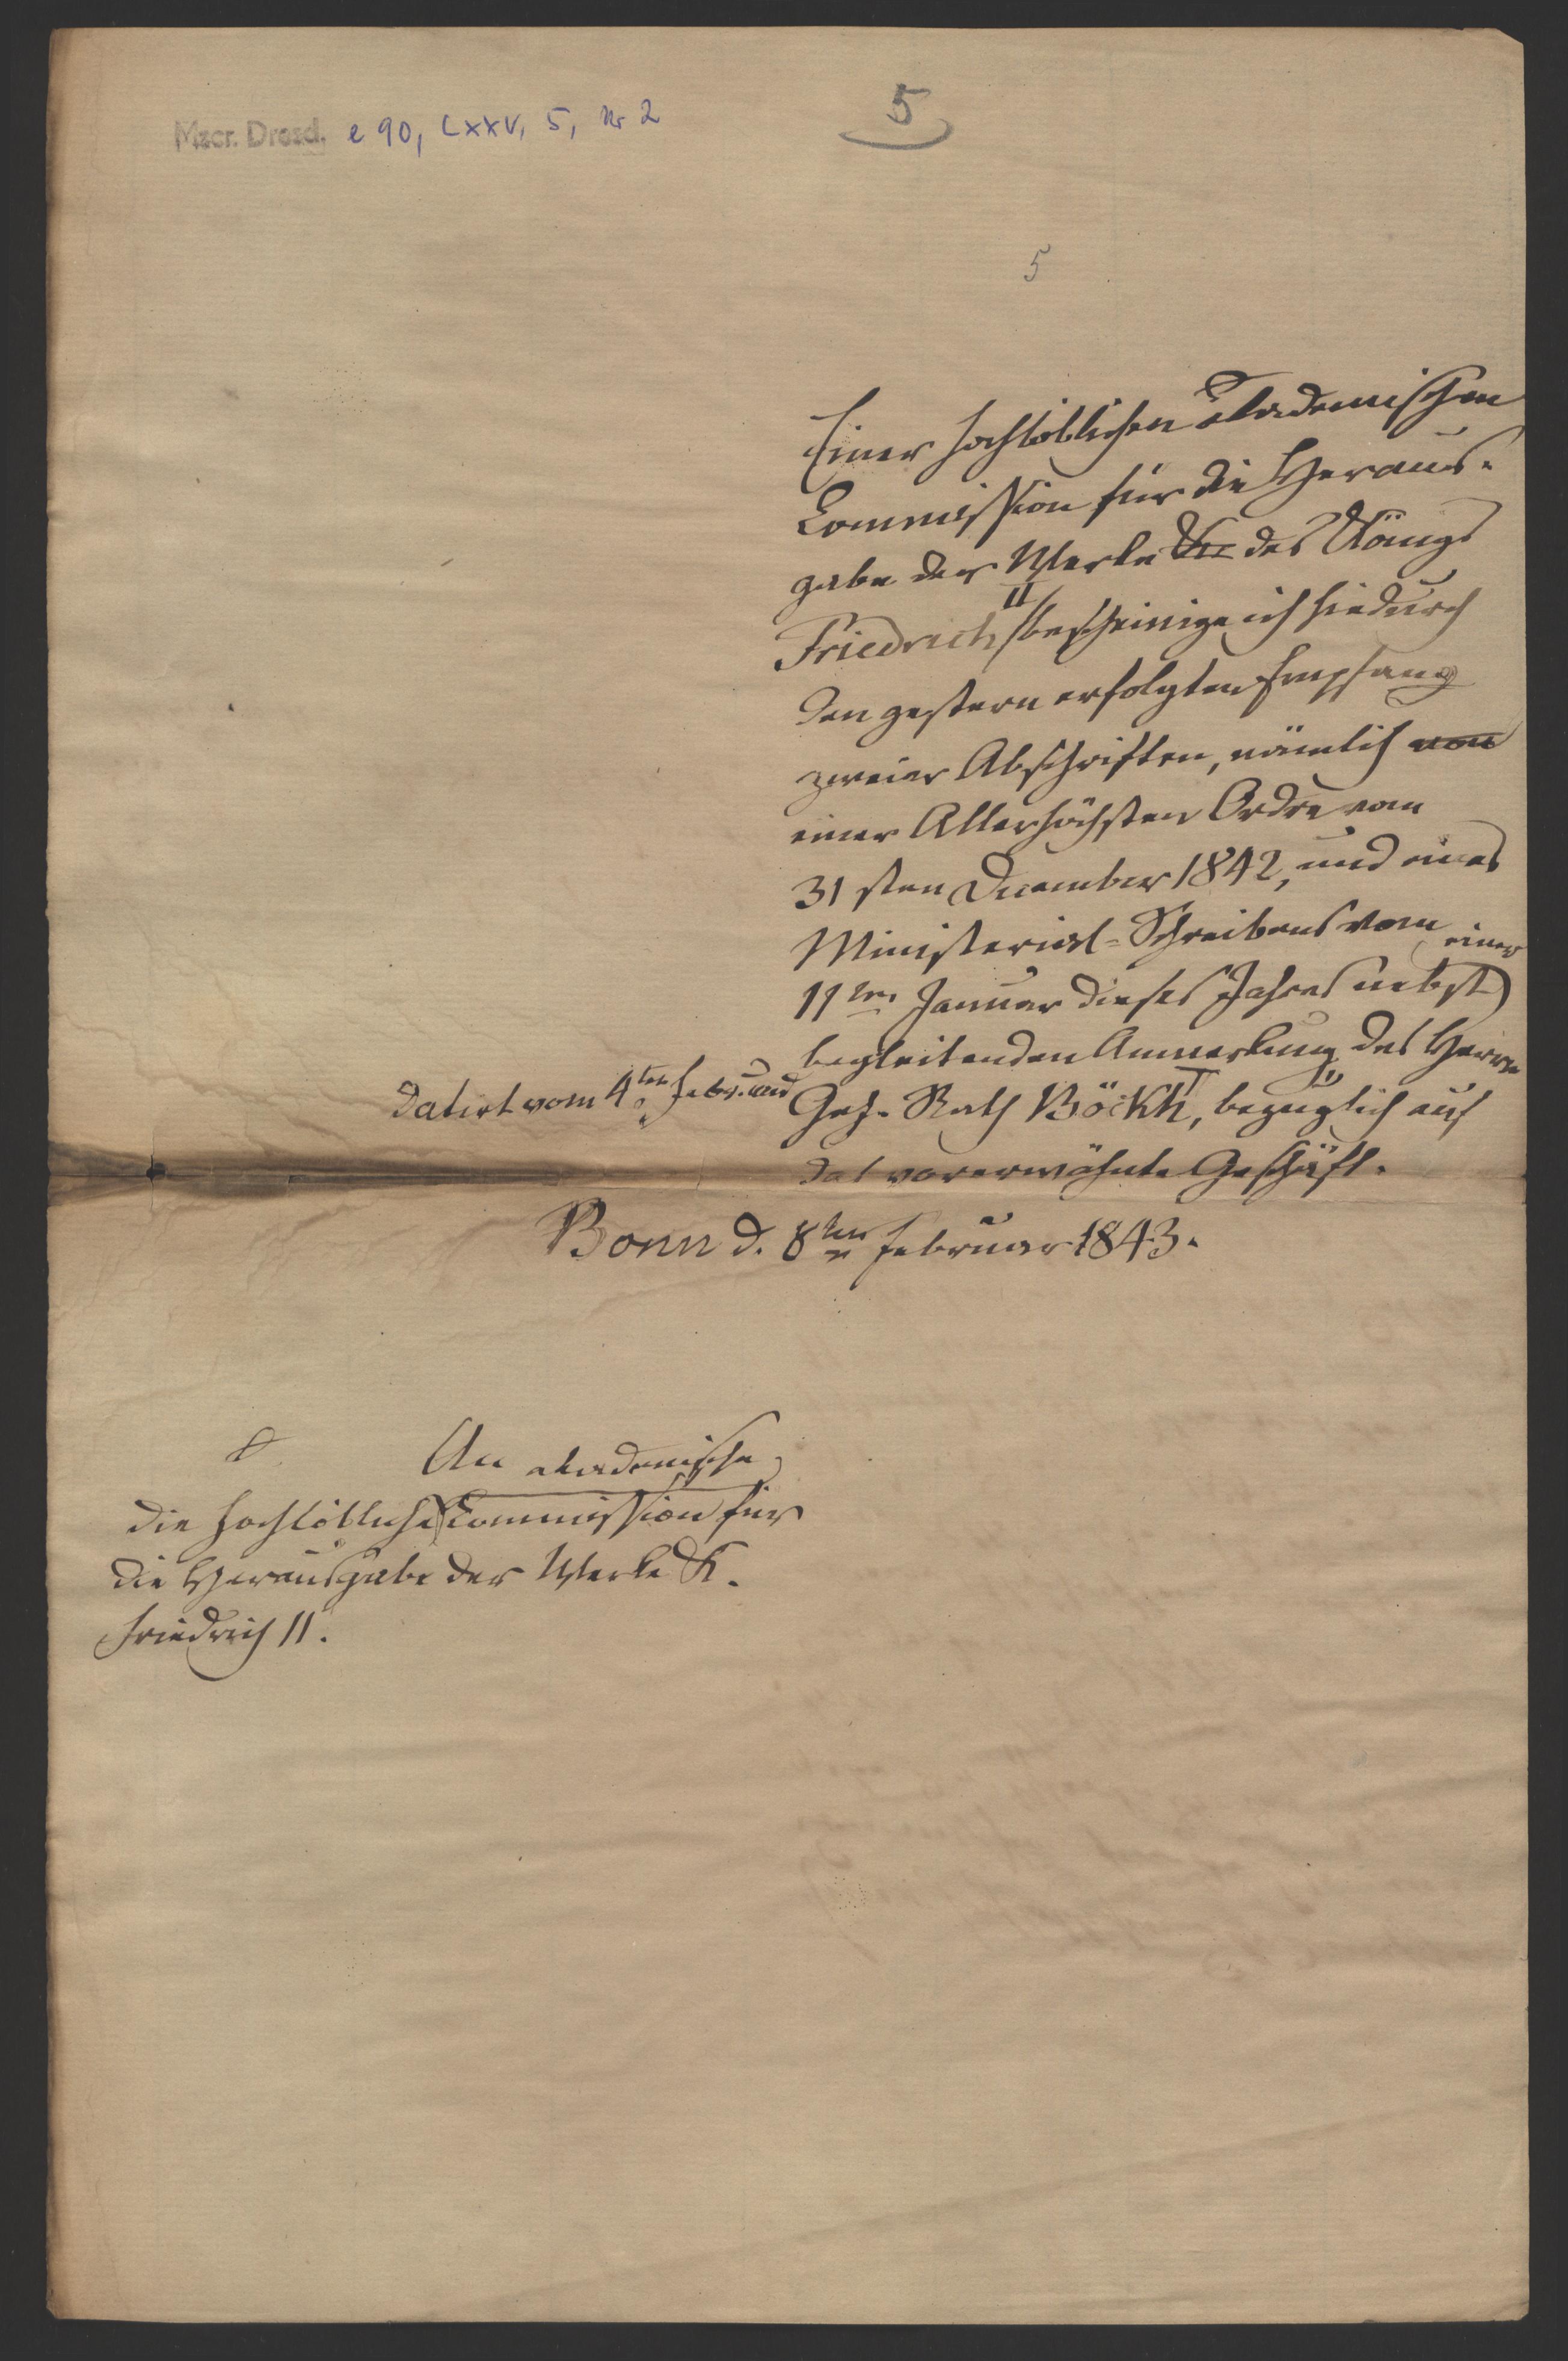 Mscr. Dresd. e 90, LXXV, 5, Nr 2
5
5
Einer hochlöblichen akademischen
Commission für die Heraus-
gabe der Werke Fr. des Königs
Friedrich II bescheinige ich hiedurch
den gestern erfolgten Empfang
zweier Abschriften, nämlich von
einer Allerhöchsten Ordre vom
31sten December 1842, und eines
Ministerial-Schreibens vom
11ten Januar dieses Jahres nebst einer
begleitenden Anmerkung des Herrn
Geh. Rath Böckh, bezüglich auf
datirt vom 4ten Febr. und
das vorerwähnte Geschäft.
Bonn d. 8ten Februar 1843.
An
die hochlöbliche akademische Commission für
die Herausgabe der Werke K.
Friedrich II.